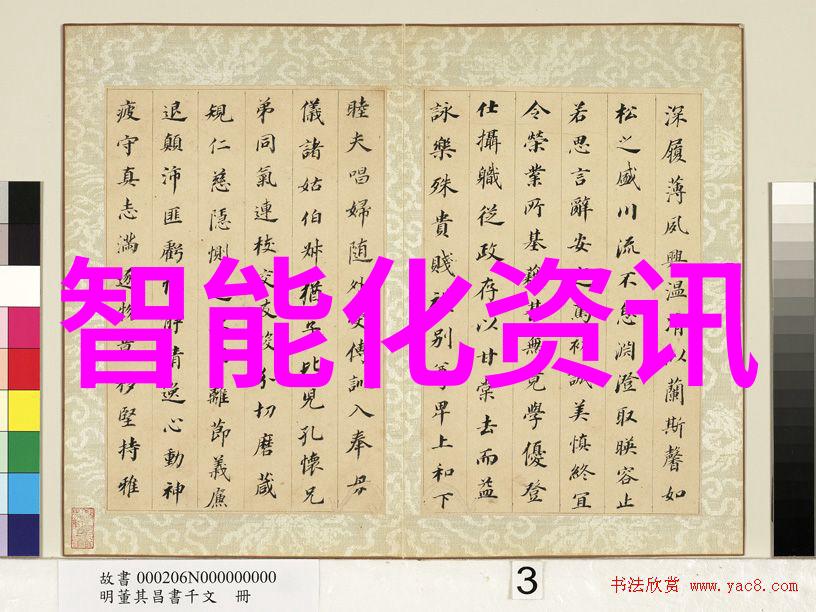 深履薄夙興温清以蘭斯馨如
松之盛川流不息淵澄取暎容止
若思言辭安篤初誠美慎終宜
令榮業所基籍甚無竟學優登
仕攝職從政存以甘棠去而益
詠樂殊貴賤別尊卑上和下
睦夫唱婦随外受傅訓入奉母
儀諸姑伯叔猶子比兒孔懷兄
弟同氣連枝交友投分切磨葴
規仁慈隱惻離節義廉
退顛沛匪虧静情逸心動神
疲守真志滿逐物意移堅持雅
智能化资讯
故書 000206N000000000
明董其昌書千文 冊
3
书法欣赏 www.yac8.com